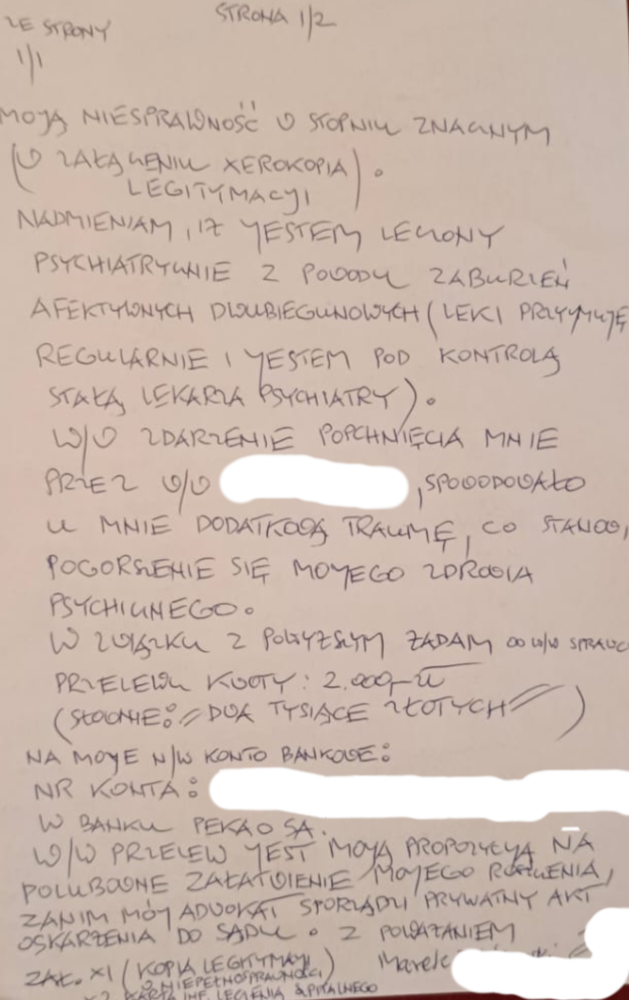 ZE STRONY
1/1
STRONA 1/2
MOJĄ NIESPRAWNOŚĆ W STOPNIU ZNACZNYM
(W ZAŁĄCZENIU XEROKOPIA).
LEGITYMACJI
NADMIENIAM, IŻ JESTEM LECZONY
PSYCHIATRYCZNIE Z POWODU ZABURZEŃ
AFEKTYWNYCH DWUBIEGUNOWYCH (LEKI PRZYJMUJĘ
REGULARNIE I JESTEM POD KONTROLĄ
STAŁĄ LEKARZA PSYCHIATRY).
W/W ZDARZENIE POPCHNIĘCIA MNIE
PRZEZ W/W , SPOWODOWAŁO
U MNIE DODATKOWĄ TRAUMĘ, CO STANOWI
POGORSZENIE SIĘ MOJEGO ZDROWIA
PSYCHICZNEGO.
W ZWIĄZKU Z POWYŻSZYM ŻĄDAM OD W/W SPRAWCY
PRZELEWU KWOTY: 2.000,- ZŁ
(SŁOWNIE: // DWA TYSIĄCE ZŁOTYCH //)
NA MOJE N/W KONTO BANKOWE:
NR KONTA:
W BANKU PEKAO SA.
W/W PRZELEW JEST MOJĄ PROPOZYCJĄ NA
POLUBOWNE ZAŁATWIENIE MOJEGO ROSZCZENIA,
ZANIM MÓJ ADWOKAT SPORZĄDZI PRYWATNY AKT
OSKARŻENIA DO SĄDU. Z POWAŻANIEM
ZAŁ. X1 (KOPIA LEGITYMACJI Marek
O NIEPEŁNOSPRAWNOŚCI)
X2 KARTA INF. LECZENIA SZPITALNEGO